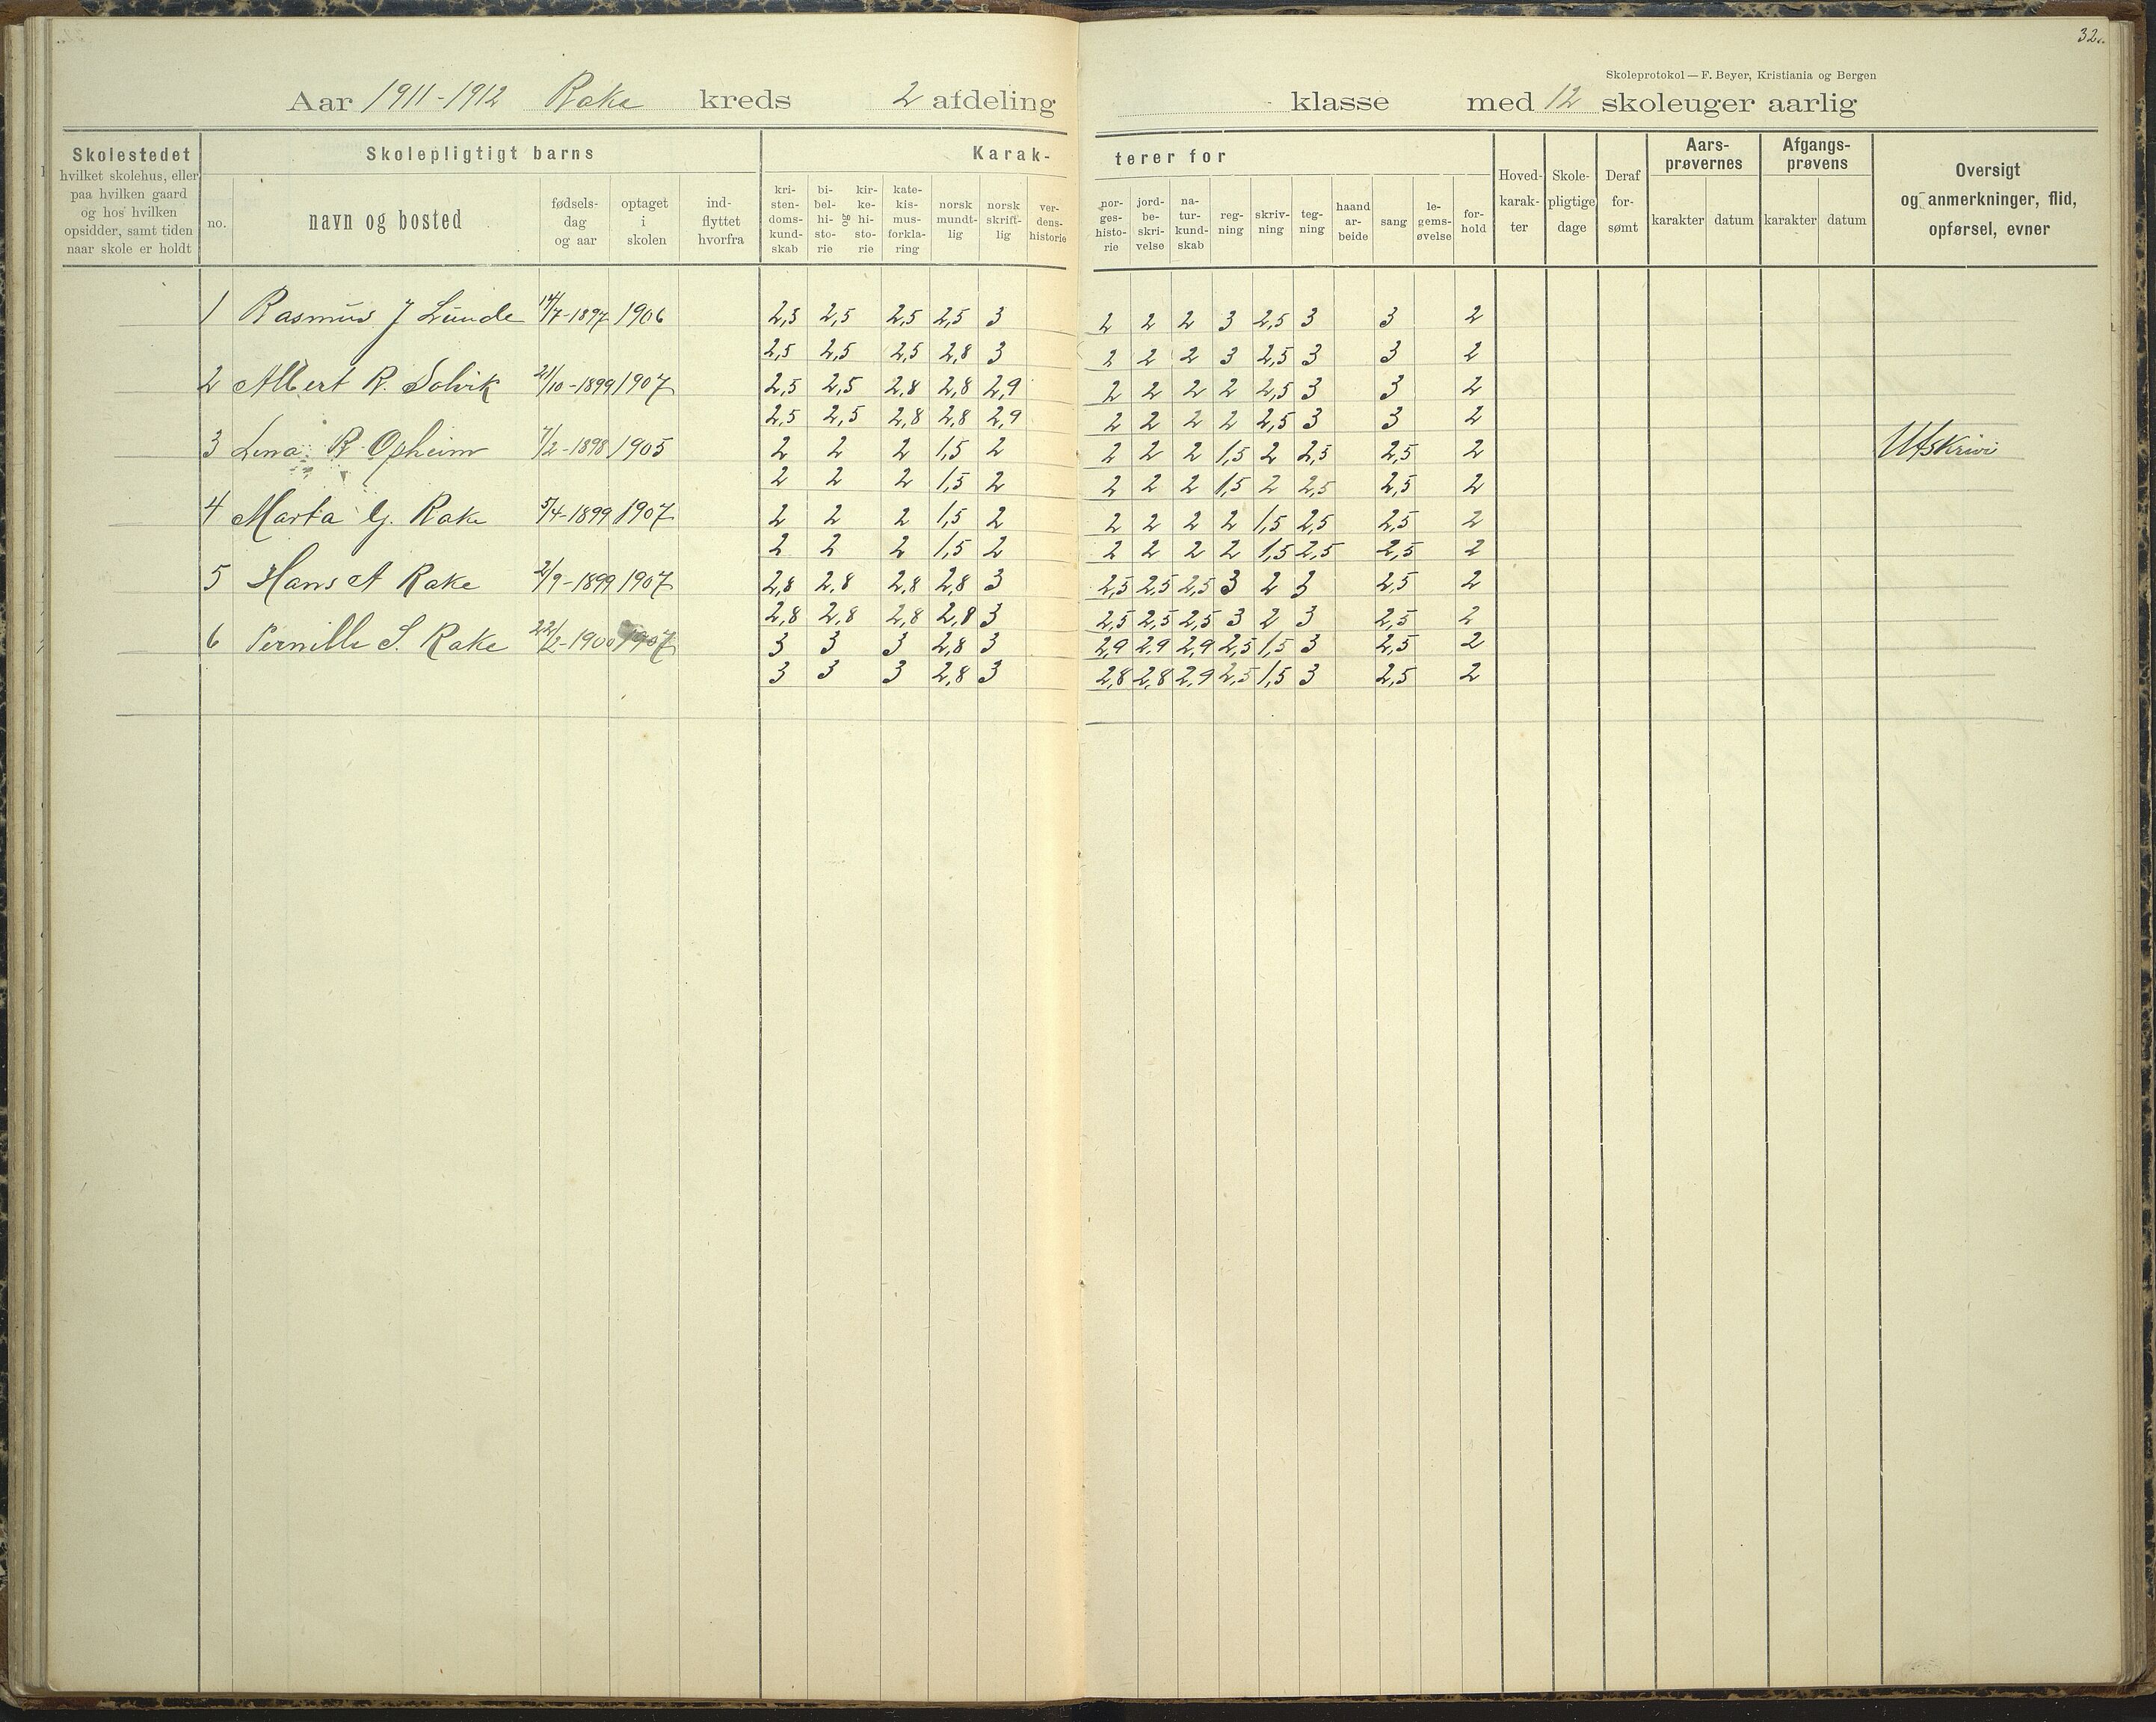 32.
Skoleprotokol — F. Beyer, Kristiania og Bergen
Aar 1911-1912 Rake kreds 2 afdeling klasse med 12 skoleuger aarlig
Skolestedet
hvilket skolehus, eller
paa hvilken gaard
og hos hvilken
opsidder, samt tiden
naar skole er holdt
Skolepligtigt barns
no.
navn og bosted
fødsels-
dag
og aar
optaget
i
skolen
ind-
flyttet
hvorfra
Karak-
kri-
sten-
doms-
kund-
skab
bi-
bel-
hi-
sto-
rie
og
kir-
ke-
hi-
sto-
rie
kate-
kis-
mus-
forkla-
ring
norsk
mundt-
lig
norsk
skrift-
lig
ver-
dens-
historie
terer for
nor-
ges-
histo-
rie
jord-
be-
skri-
velse
na-
tur-
kund-
skab
reg-
ning
skriv-
ning
teg-
ning
haand
ar-
beide
sang
le-
gems-
øvelse
for-
hold
Hoved-
karak-
ter
Skole-
pligtige
dage
Deraf
for-
sømt
Aars-
prøvernes
karakter datum
Afgangs-
prøvens
karakter datum
Oversigt
og anmerkninger, flid,
opførsel, evner
1 Rasmus J Lunde 14/7-1897 1906 2,5 2,5 2,5 2,5 3 2 2 2 3 2,5 3 3 2
2,5 2,5 2,5 2,8 3 2 2 2 3 2,5 3 3 2
2 Albert R. Solvik 21/10-1899 1907 2,5 2,5 2,8 2,8 2,9 2 2 2 2 2,5 3 3 2
2,5 2,5 2,8 2,8 2,9 2 2 2 2 2,5 3 3 2
3 Lena R. Opheim 7/2-1898 1905 2 2 2 1,5 2 2 2 2 1,5 2 2,5 2,5 2 Utskrivi
2 2 2 1,5 2 2 2 2 1,5 2 2,5 2,5 2
4 Marta G. Rake 5/4-1899 1907 2 2 2 1,5 2 2 2 2 2 1,5 2,5 2,5 2
2 2 2 1,5 2 2 2 2 2 1,5 2,5 2,5 2
5 Hans A Rake 2/9-1899 1907 2,8 2,8 2,8 2,8 3 2,5 2,5 2,5 3 2 3 2,5 2
2,8 2,8 2,8 2,8 3 2,5 2,5 2,5 3 2 3 2,5 2
6 Pernille S. Rake 22/2-1900 1907 3 3 3 2,8 3 2,9 2,9 2,9 2,5 1,5 3 2,5 2
3 3 3 2,8 3 2,8 2,8 2,9 2,5 1,5 3 2,5 2